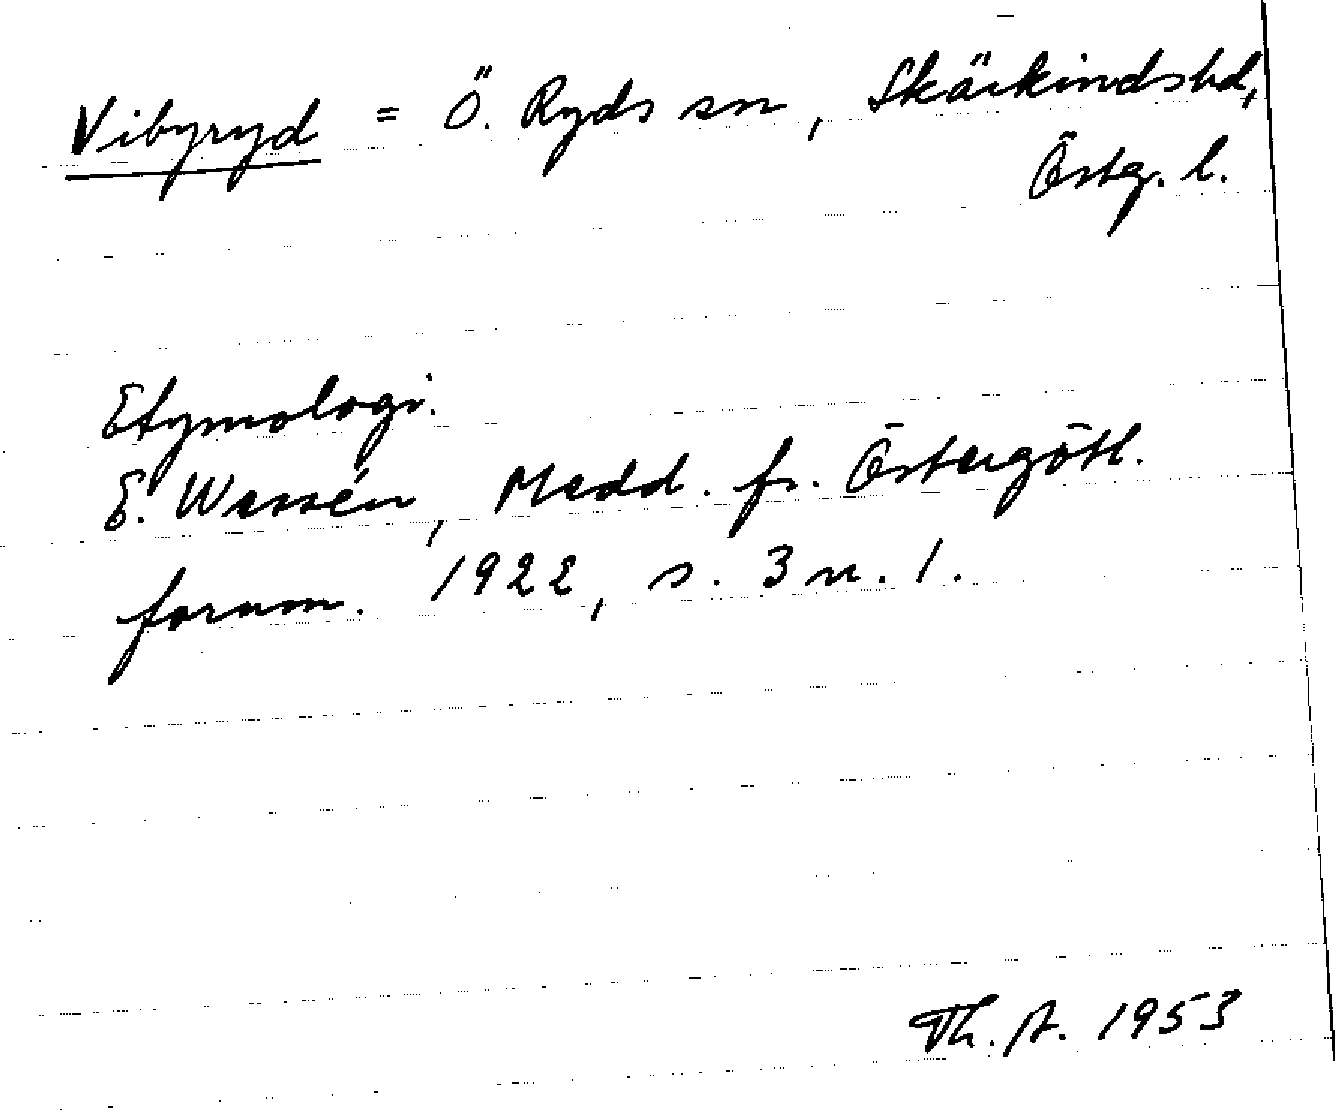 Vibyryd = Ö. Ryds sn, Skärkindshd,
Östg. l.
Etymologi.
E. Wessén, Medd. fr. Östergötl.
fornm. 1922, s. 3 n. 1.
Th. A. 1953